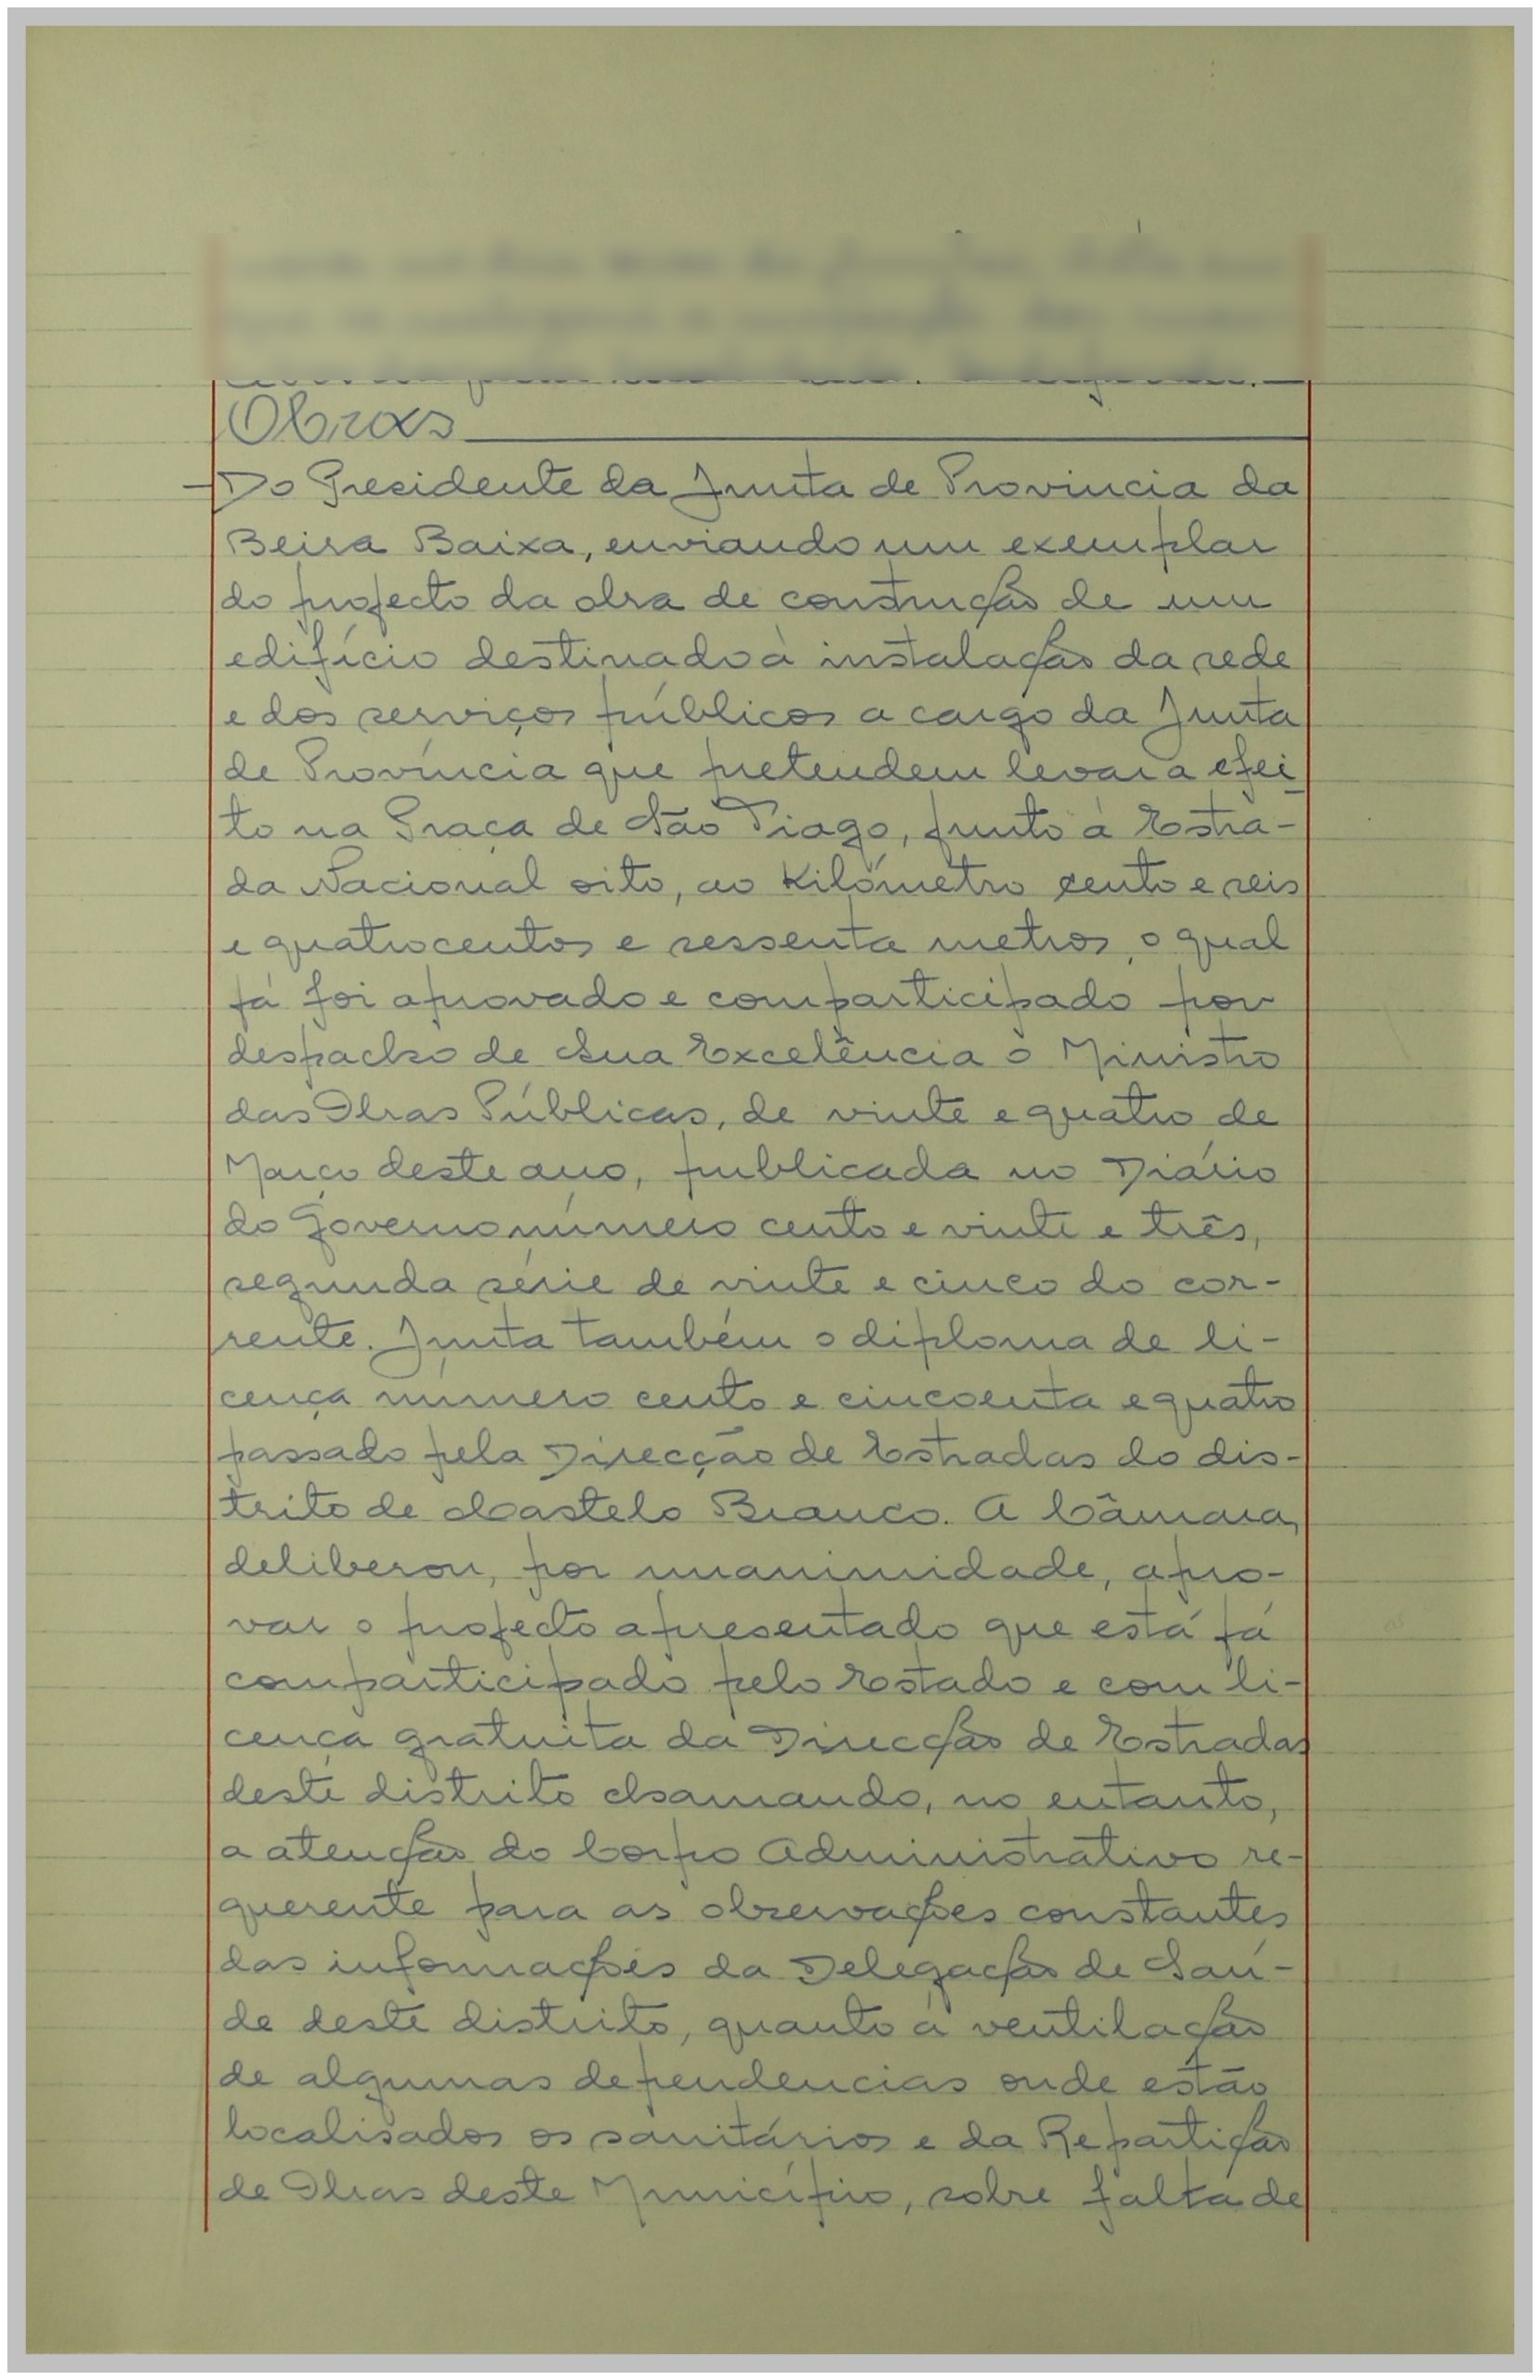 Obras
Do Presidente da Junta de Provincia da
Beira Baixa, enviando um exemplar
do projecto da obra de construção de um
edifício destinado à instalação da sede
e dos serviços públicos a cargo da Junta
de Província que pretendem levar a efei
to na Praça de São Tiago, junto à Estra-
da Nacional oito, ao Kilómetro cento e seis
e quatrocentos e sessenta metros, o qual
já foi aprovado e comparticipado por
despacho de Sua Excelência o Ministro
das Obras Públicas, de vinte e quatro de
Março deste ano, publicada no Diário
do Governo número cento e vinte e três,
segunda série de vinte e cinco do cor-
rente. Junta também o diploma de li-
cença número cento e cincoenta e quatro
passado pela Direcção de Estradas do dis-
trito de Castelo Branco. A Câmara,
deliberou, por unanimidade, apro-
var o projecto apresentado que está já
comparticipado pelo Estado e com li-
cença gratuita da Direcção de Estradas
deste distrito chamando, no entanto,
a atenção do Corpo Administrativo re-
querente para as observações constantes
das informações da Delegação de Saú-
de deste distrito, quanto à ventilação
de algumas dependencias onde estão
localisados os sanitários e da Repartição
de Obras deste Município, sobre falta de